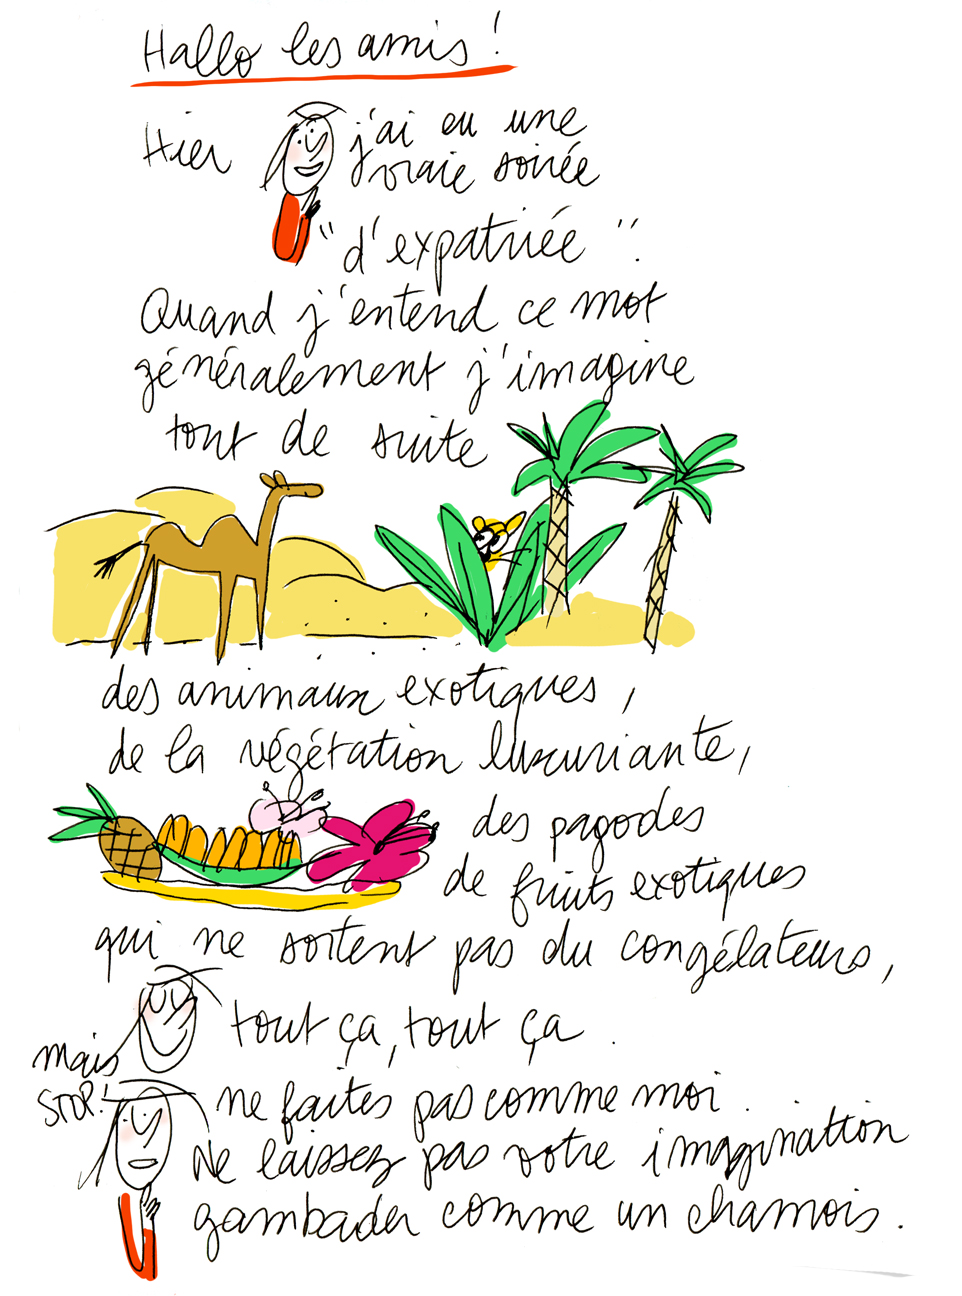 Hallo les amis !
Hier j'ai eu une
vraie soirée
"d'expatriée".
Quand j'entend ce mot
généralement j'imagine
tout de suite
des animaux exotiques,
de la végétation luxuriante,
des pagodes
de fruits exotiques
qui ne sortent pas du congélateurs,
tout ça, tout ça.
mais
STOP!
ne faites pas comme moi.
Ne laissez pas votre imagination
gambader comme un chamois.